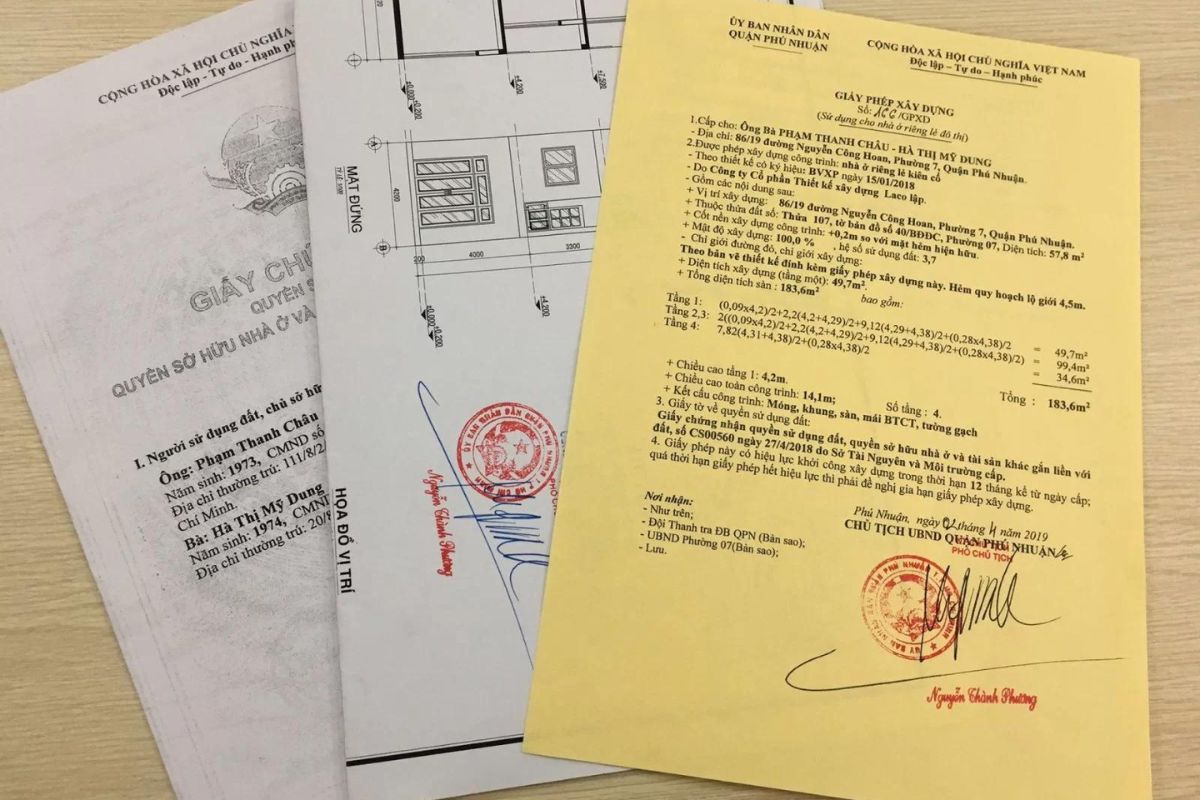 CỘNG HÒA XÃ HỘI CHỦ NGHĨA
Độc lập - Tự do - Hạnh phúc
GIẤY CHỨ
QUYỀN S
QUYỀN SỞ HỮU NHÀ Ở VÀ
I. Người sử dụng đất, chủ sở hữ
Ông: Phạm Thanh Châu
Năm sinh: 1973, CMND số
Địa chỉ thường trú: 111/8/2
Chí Minh.
Bà: Hà Thị Mỹ Dung
Năm sinh: 1974, CMND
Địa chỉ thường trú: 20/8
±0,000
+0,200
+4,200
+7,500
A
B
MẶT ĐỨNG
4200
200
4000
3300
+4,200
±0,000
+0,200
ỦY BAN NHÂN DÂN QUẬN PHÚ NHUẬN T. HỒ CHÍ MINH
PHÓ CH
Nguyễn Thành Phương
HỌA ĐỒ VỊ TRÍ
ỦY BAN NHÂN DÂN
QUẬN PHÚ NHUẬN
CỘNG HÒA XÃ HỘI CHỦ NGHĨA VIỆT NAM
Độc lập - Tự do – Hạnh phúc
GIẤY PHÉP XÂY DỰNG
Số: /GPXD
(Sử dụng cho nhà ở riêng lẻ đô thị)
1.Cấp cho: Ông Bà PHẠM THANH CHÂU - HÀ THỊ MỸ DUNG
- Địa chỉ: 86/19 đường Nguyễn Công Hoan, Phường 7, Quận Phú Nhuận.
2.Được phép xây dựng công trình: nhà ở riêng lẻ kiên cố
- Theo thiết kế có ký hiệu: BVXP ngày 15/01/2018
- Do Công ty Cổ phần Thiết kế xây dựng Laco lập.
- Gồm các nội dung sau:
+ Vị trí xây dựng: 86/19 đường Nguyễn Công Hoan, Phường 7, Quận Phú Nhuận.
+ Thuộc thửa đất số: Thửa 107, tờ bản đồ số 40/BĐĐC, Phường 07, Diện tích: 57,8 m²
+ Cốt nền xây dựng công trình: +0,2m so với mặt hẻm hiện hữu.
+ Mật độ xây dựng: 100,0 % , hệ số sử dụng đất: 3,7
- Chỉ giới đường đỏ, chỉ giới xây dựng:
Theo bản vẽ thiết kế đính kèm giấy phép xây dựng này. Hẻm quy hoạch lộ giới 4,5m.
+ Diện tích xây dựng (tầng một): 49,7m².
+ Tổng diện tích sàn : 183,6m² bao gồm:
Tầng 1: (0,09x4,2)/2+2,2(4,2+4,29)/2+9,12(4,29+4,38)/2+(0,28x4,38)/2 = 49,7m²
Tầng 2,3: 2((0,09x4,2)/2+2,2(4,2+4,29)/2+9,12(4,29+4,38)/2+(0,28x4,38)/2) = 99,4m²
Tầng 4: 7,82(4,31+4,38)/2+(0,28x4,38)/2 = 34,6m²
Tổng : 183,6m²
+ Chiều cao tầng 1: 4,2m.
+ Chiều cao toàn công trình: 14,1m; Số tầng : 4.
+ Kết cấu công trình: Móng, khung, sàn, mái BTCT, tường gạch
3. Giấy tờ về quyền sử dụng đất:
Giấy chứng nhận quyền sử dụng đất, quyền sở hữu nhà ở và tài sản khác gắn liền với
đất, số CS00560 ngày 27/4/2018 do Sở Tài Nguyên và Môi trường cấp.
4. Giấy phép này có hiệu lực khởi công xây dựng trong thời hạn 12 tháng kể từ ngày cấp;
quá thời hạn giấy phép hết hiệu lực thì phải đề nghị gia hạn giấy phép xây dựng.
Phú Nhuận, ngày 02 tháng 4 năm 2019
CHỦ TỊCH UBND QUẬN PHÚ NHUẬN
PHÓ CHỦ TỊCH
Nơi nhận:
- Như trên;
- Đội Thanh tra ĐB QPN (Bản sao);
- UBND Phường 07(Bản sao);
- Lưu.
Nguyễn Thành Phương